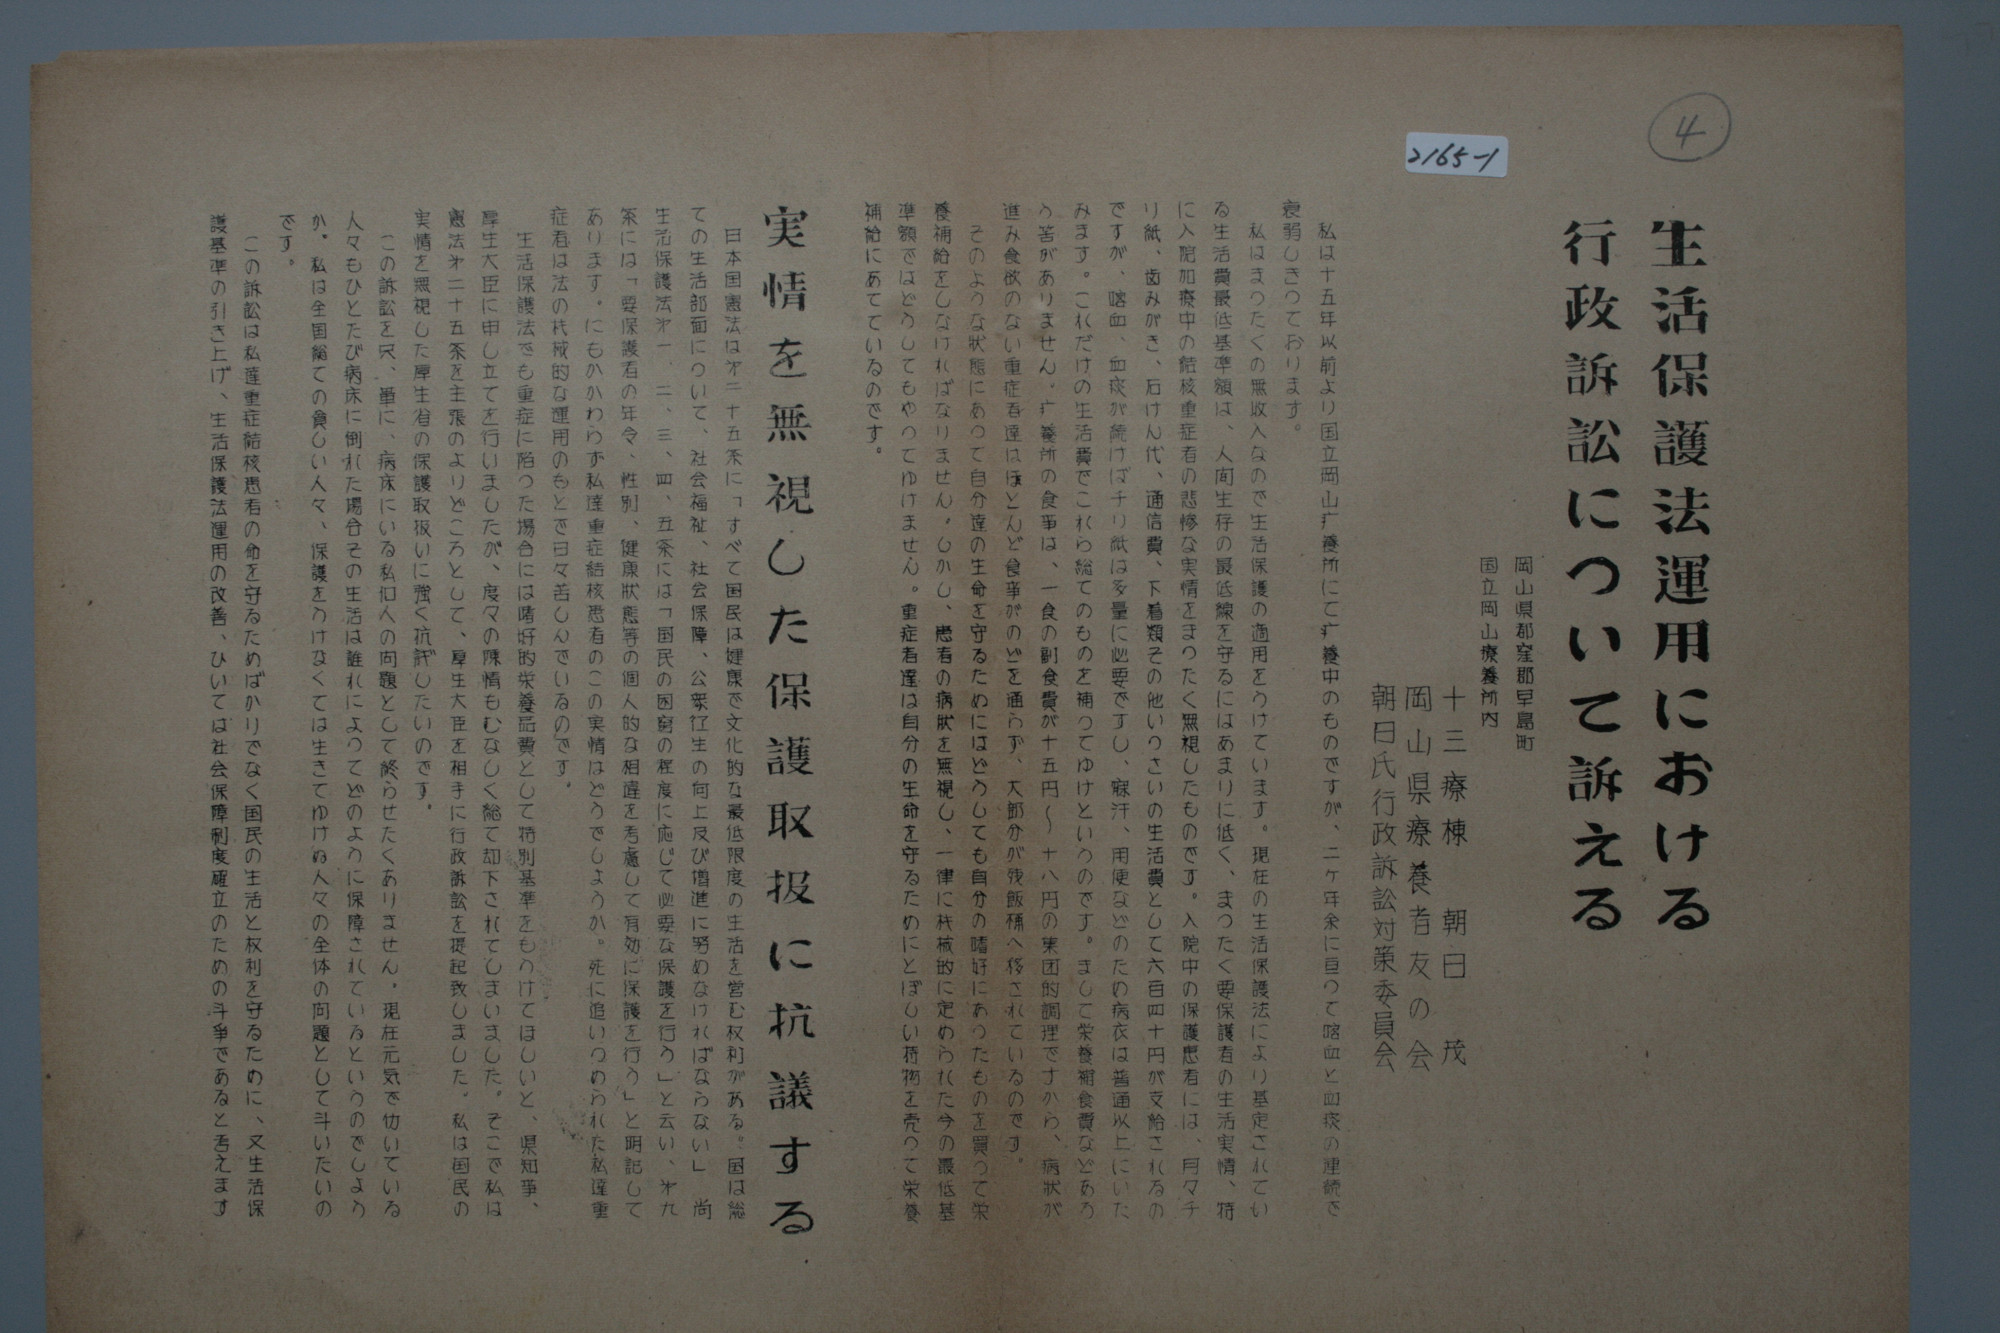 ④
2165-1
生活保護法運用における
行政訴訟について訴える
岡山県都窪郡早島町
国立岡山療養所内
十三療棟 朝日 茂
岡山県療養者友の会
朝日氏行政訴訟対策委員会
私は十五年以前より国立岡山疗養所にて疗養中のものですが、二ヶ年余に亘って喀血と血痰の連続で
衰弱しきっております。
私はまったくの無収入なので生活保護の適用をうけています。現在の生活保護法により基定されてい
る生活費最低基準額は、人间生存の最低線を守るにはあまりに低く、まったく要保護者の生活実情、特
に入院加療中の結核重症者の悲惨な実情をまったく無視したものです。入院中の保護患者には、月々チ
リ紙、歯みがき、石けん代、通信費、下着類その他いっさいの生活費として六百四十円が支給されるの
ですが、喀血、血痰が続けばチリ紙は多量に必要ですし、寝汗、用便などのため病衣は普通以上にいた
みます。これだけの生活費でこれら総てのものを補ってゆけというのです。まして栄養補食費などあろ
う筈がありません。疗養所の食事は、一食の副食費が十五円～十八円の集団的調理ですから、病状が
進み食欲のない重症者達はほとんど食事がのどを通らず、大部分が残飯桶へ移されているのです。
そのような状態にあって自分達の生命を守るためにはどうしても自分の嗜好にあったものを買って栄
養補給をしなければなりません。しかし、患者の病状を無視し、一律に杙械的に定められた今の最低基
準額ではどうしてもやってゆけません。重症者達は自分の生命を守るためにとぼしい持物を売って栄養
補給にあてているのです。
実情を無視した保護取扱に抗議する
日本国憲法は才二十五条に「すべて国民は健康で文化的な最低限度の生活を営む权利がある。国は総
ての生活部面について、社会福祉、社会保障、公衆衛生の向上及び増進に努めなければならない」尚
生活保護法才一、二、三、四、五条には「国民の困窮の程度に応じて必要な保護を行う」と云い、才九
条には「要保護者の年令、性別、健康状態等の個人的な相違を考慮して有効に保護を行う」と明記して
あります。にもかかわらず私達重症結核患者のこの実情はどうでしようか。死に追いつめられた私達重
症者は法の杙械的な運用のもとで日々苦しんでいるのです。
生活保護法でも重症に陥った場合には嗜好的栄養品費として特別基準をもうけてほしいと、県知事、
厚生大臣に申し立てを行いましたが、度々の陳情もむなしく総て却下されてしまいました。そこで私は
憲法才二十五条を主張のよりどころとして、厚生大臣を相手に行政訴訟を提起致しました。私は国民の
実情を無視した厚生省の保護取扱いに強く抗議したいのです。
この訴訟を只、単に、病床にいる私個人の问題として終らせたくありません。現在元気で仂いている
人々もひとたび病床に倒れた場合その生活は誰れによってどのように保障されているというのでしょう
か。私は全国総ての貧しい人々、保護をうけなくては生きてゆけぬ人々の全体の问題として斗いたいの
です。
この訴訟は私達重症結核患者の命を守るためばかりでなく国民の生活と权利を守るために、又生活保
護基準の引き上げ、生活保護法運用の改善、ひいては社会保障制度確立のための斗争であると考えます